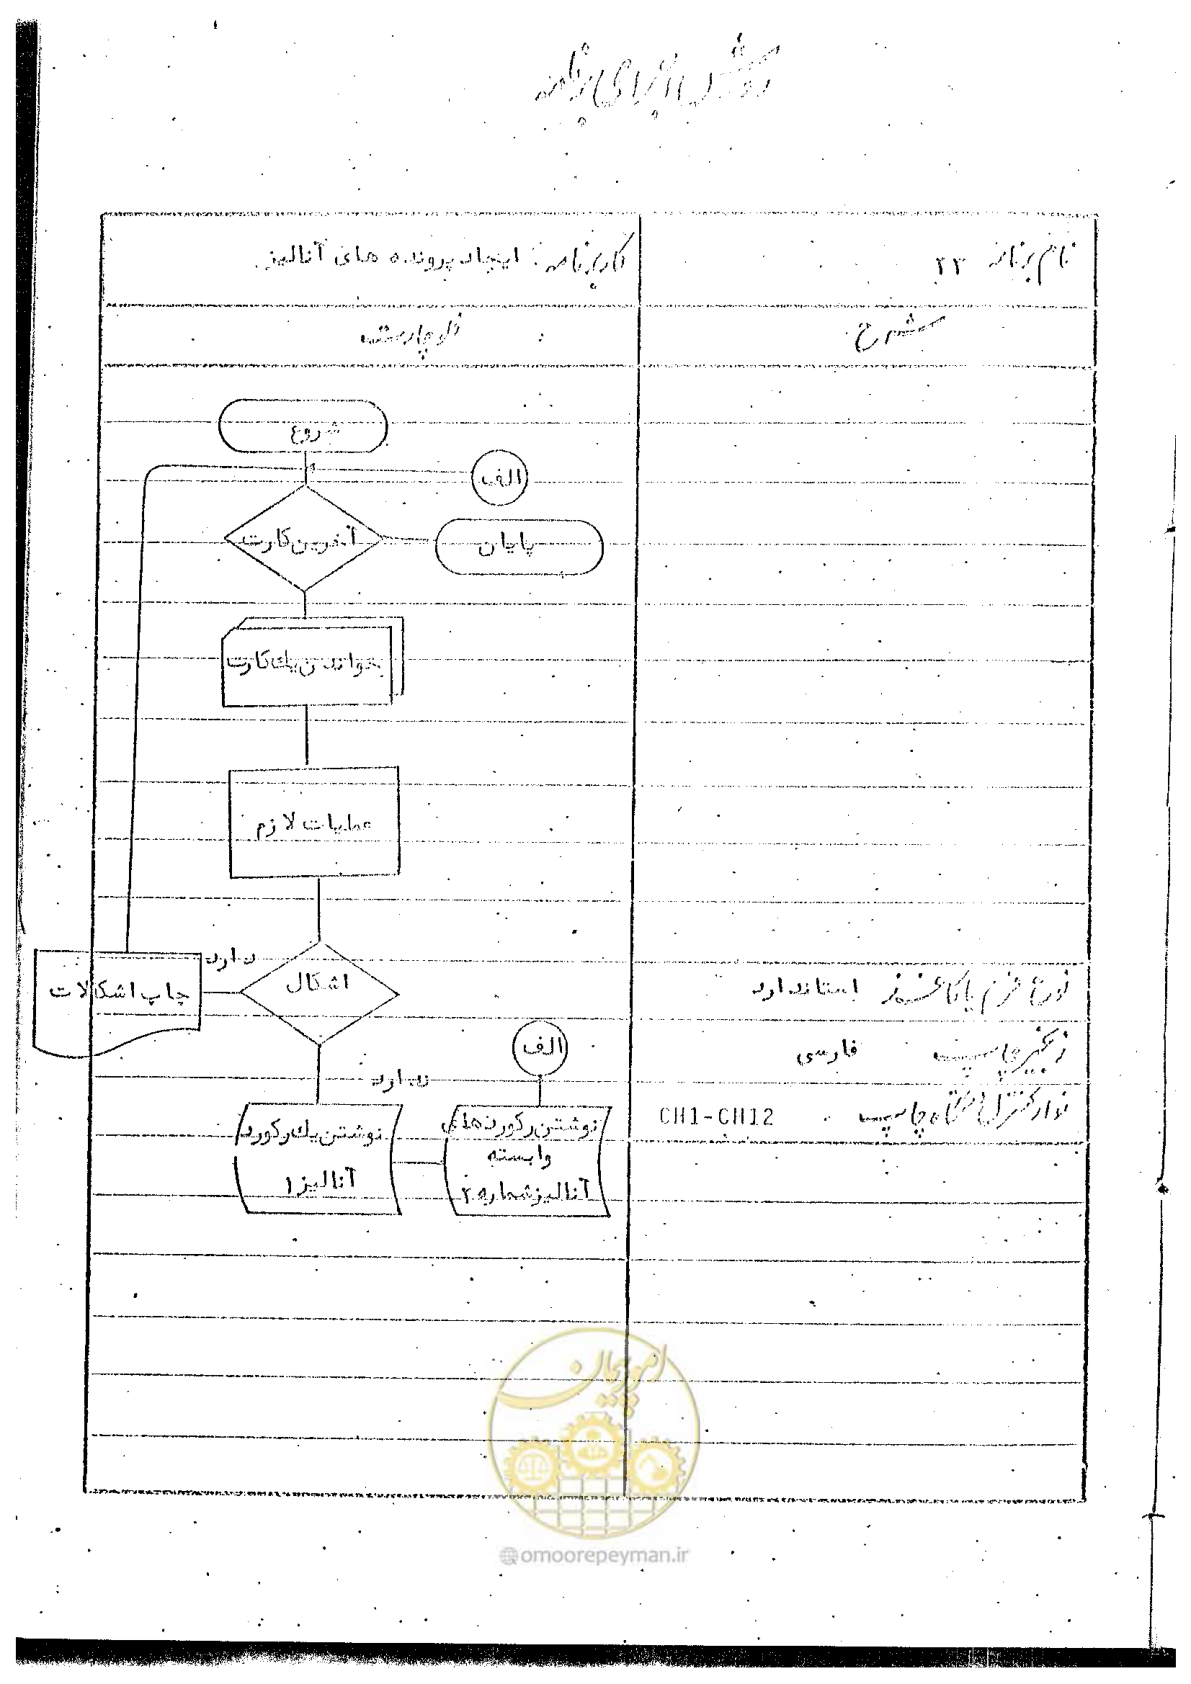 روش اجرای برنامه
نام برنامه ۲۳
کار برنامه : ایجاد پرونده های آنالیز
شرح
فلوچارت
شروع
الف
آخرین کارت
پایان
خواندن یک کارت
عملیات لازم
اشکال
دارد
چاپ اشکالات
ندارد
الف
نوشتن یک رکورد
آنالیز ۱
نوشتن رکوردهای
وابسته
آنالیز شماره ۲
نوع فرم یا کاغذ استاندارد
زنجیر چاپ فارسی
نوار کنترل دستگاه چاپ CH1-CH12
امور پیمان
@omoorepeyman.ir